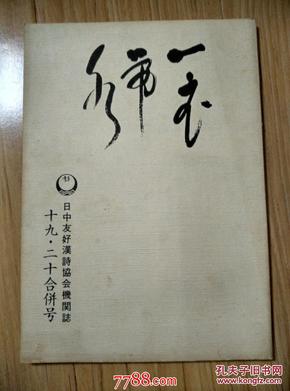 一衣帯水
日中友好漢詩協会機関誌
十九・二十合併号
7788.com
孔夫子旧书网